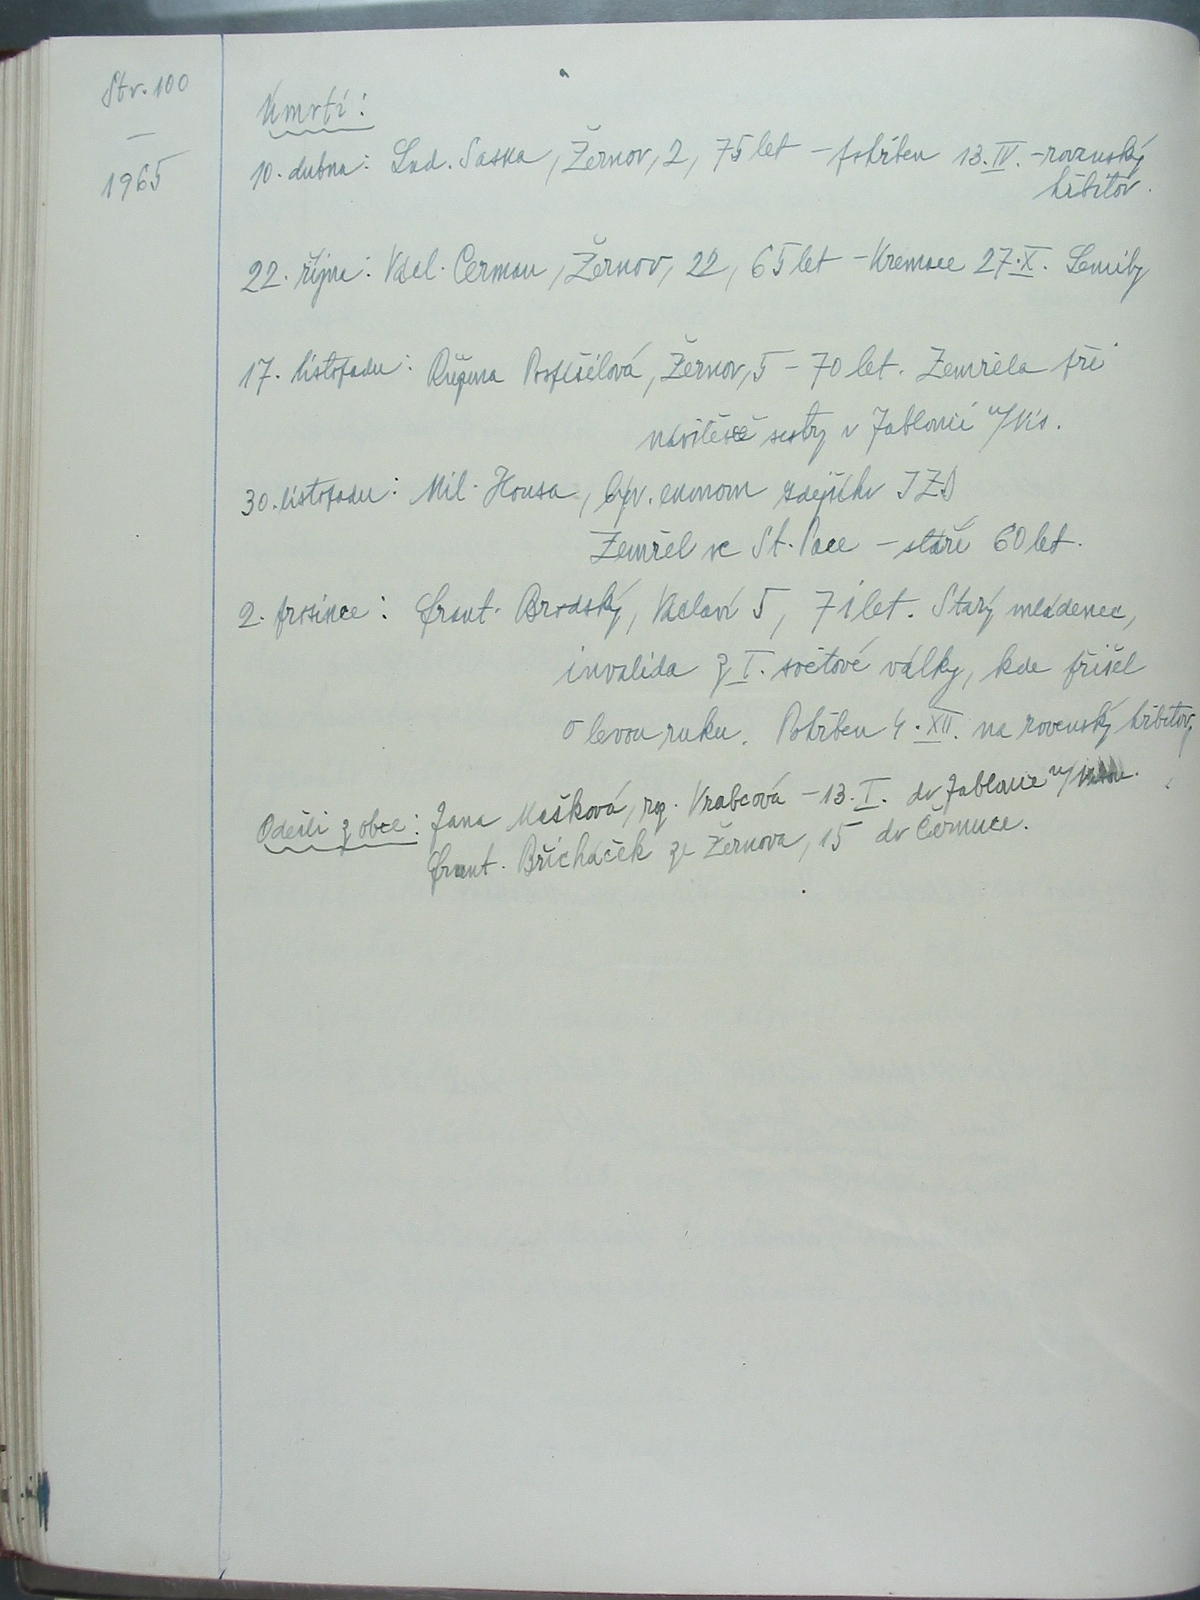 Str. 100
—
1965
Úmrtí:
10. dubna: Lad. Saska, Žernov, 2, 75 let – pohřben 13. IV. – rovenský
hřbitov.
22. října: Václ. Cerman, Žernov, 22, 65 let – Kremace 27. X. Semily
17. listopadu: Růžena Pospíšilová, Žernov, 5 – 70 let. Zemřela při
návštěvě sestry v Jablonci n/Nis.
30. listopadu: Mil. Housa, býv. ekonom zdejšího JZD
Zemřel ve St. Pace – stáří 60 let.
2. prosince: Frant. Brodský, Václaví 5, 71 let. Starý mládenec,
invalida z I. světové války, kde přišel
o levou ruku. Pohřben 4. XII. na rovenský hřbitov.
Odešli z obce: Jana Mašková, roz. Vrabcová – 13. I. do Jablonce n/
Frant. Břicháček ze Žernova, 15 do Černuce.